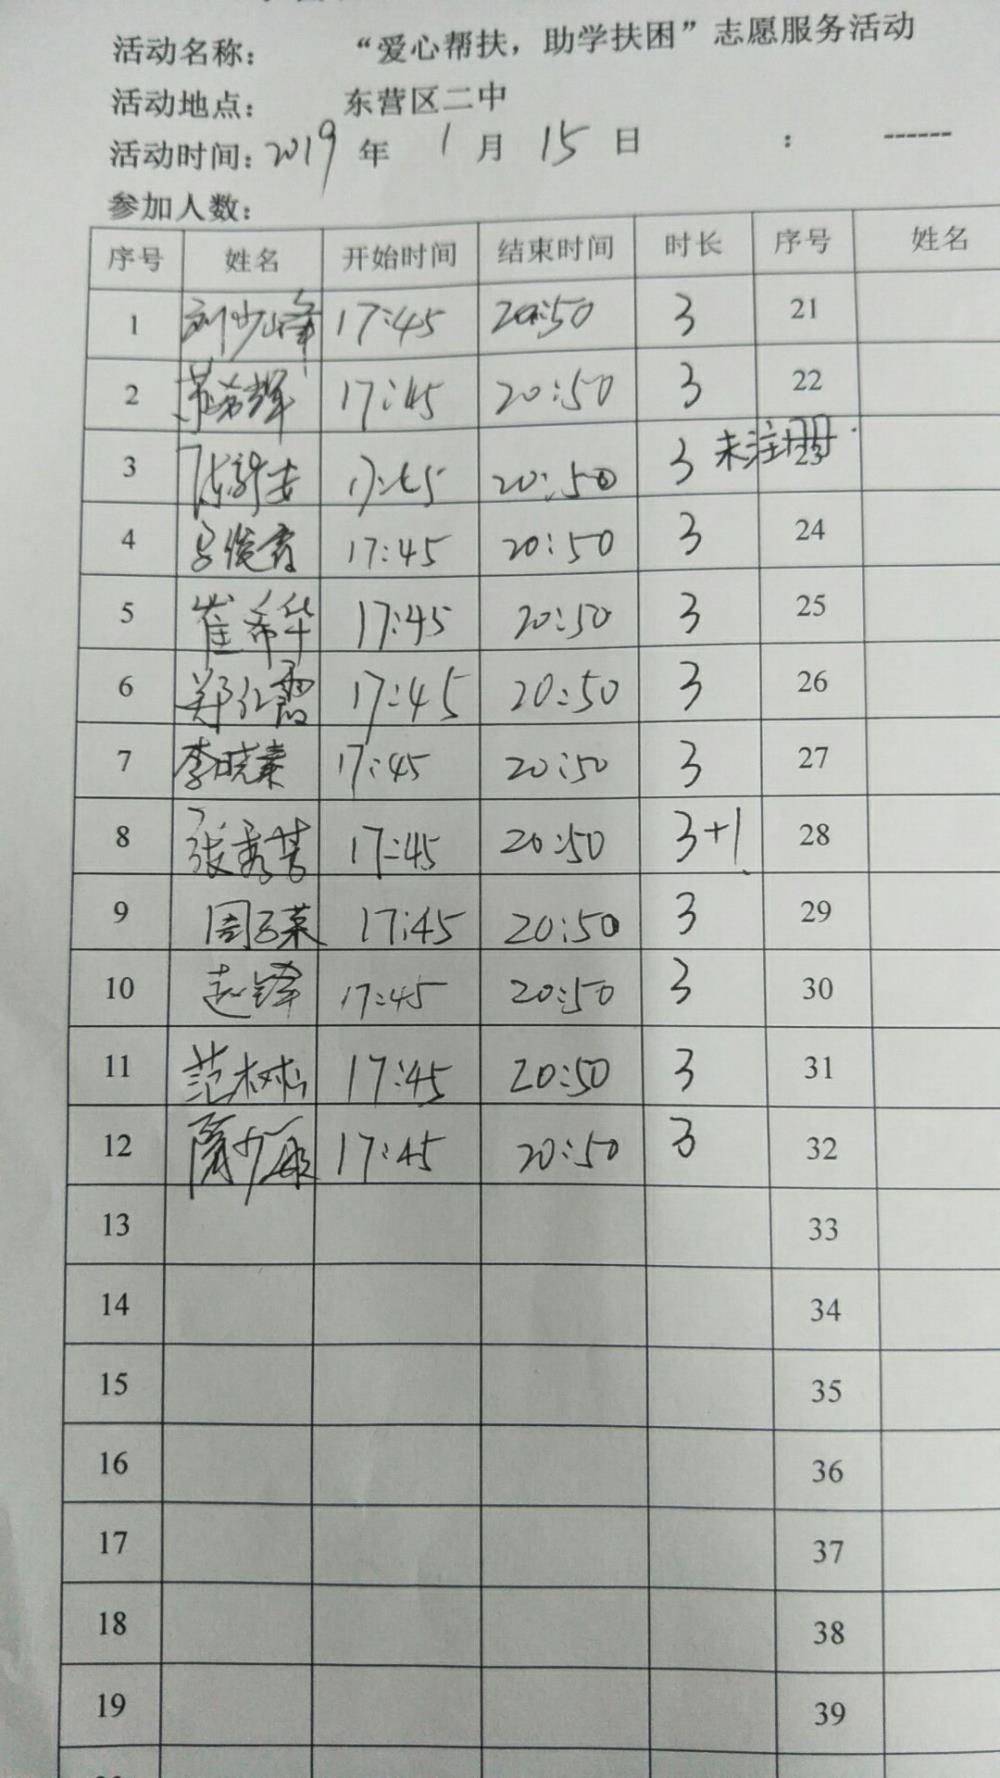 活动名称： “爱心帮扶，助学扶困”志愿服务活动
活动地点： 东营区二中
活动时间：2019 年 1 月 15 日 ： ------
参加人数：
序号 姓名 开始时间 结束时间 时长 序号 姓名
1 刘少峰 17:45 20:50 3 21
2 17:45 20:50 3 22
3 17:45 20:50 3 未注册 23
4 17:45 20:50 3 24
5 崔希华 17:45 20:50 3 25
6 郑红霞 17:45 20:50 3 26
7 李晓素 17:45 20:50 3 27
8 张秀芳 17:45 20:50 3+1 28
9 周子荣 17:45 20:50 3 29
10 赵锋 17:45 20:50 3 30
11 范树松 17:45 20:50 3 31
12 17:45 20:50 3 32
13 33
14 34
15 35
16 36
17 37
18 38
19 39